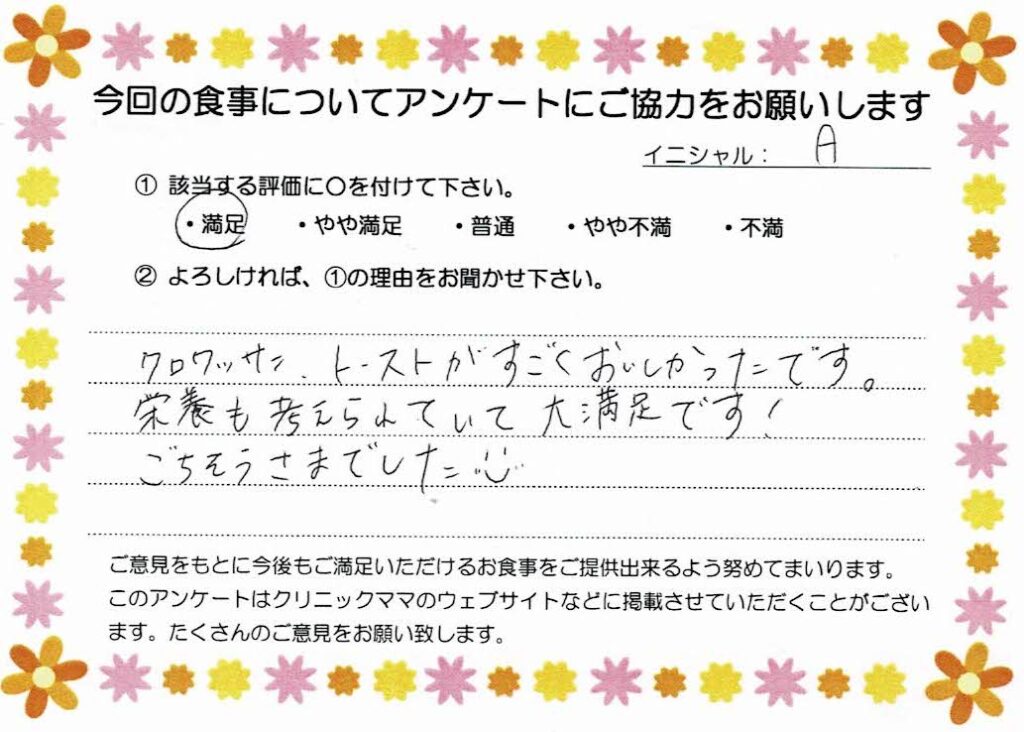 今回の食事についてアンケートにご協力をお願いします
イニシャル： A
① 該当する評価に〇を付けて下さい。
・満足 ・やや満足 ・普通 ・やや不満 ・不満
② よろしければ、①の理由をお聞かせ下さい。
クロワッサン、トーストがすごくおいしかったです。
栄養も考えられていて大満足です！
ごちそうさまでした
ご意見をもとに今後もご満足いただけるお食事をご提供出来るよう努めてまいります。
このアンケートはクリニックママのウェブサイトなどに掲載させていただくことがござい
ます。たくさんのご意見をお願い致します。